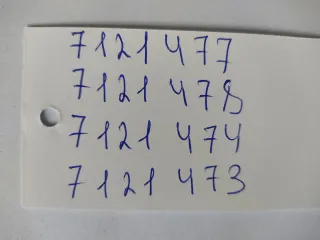 7121 477
7121 478
7121 474
7121 473